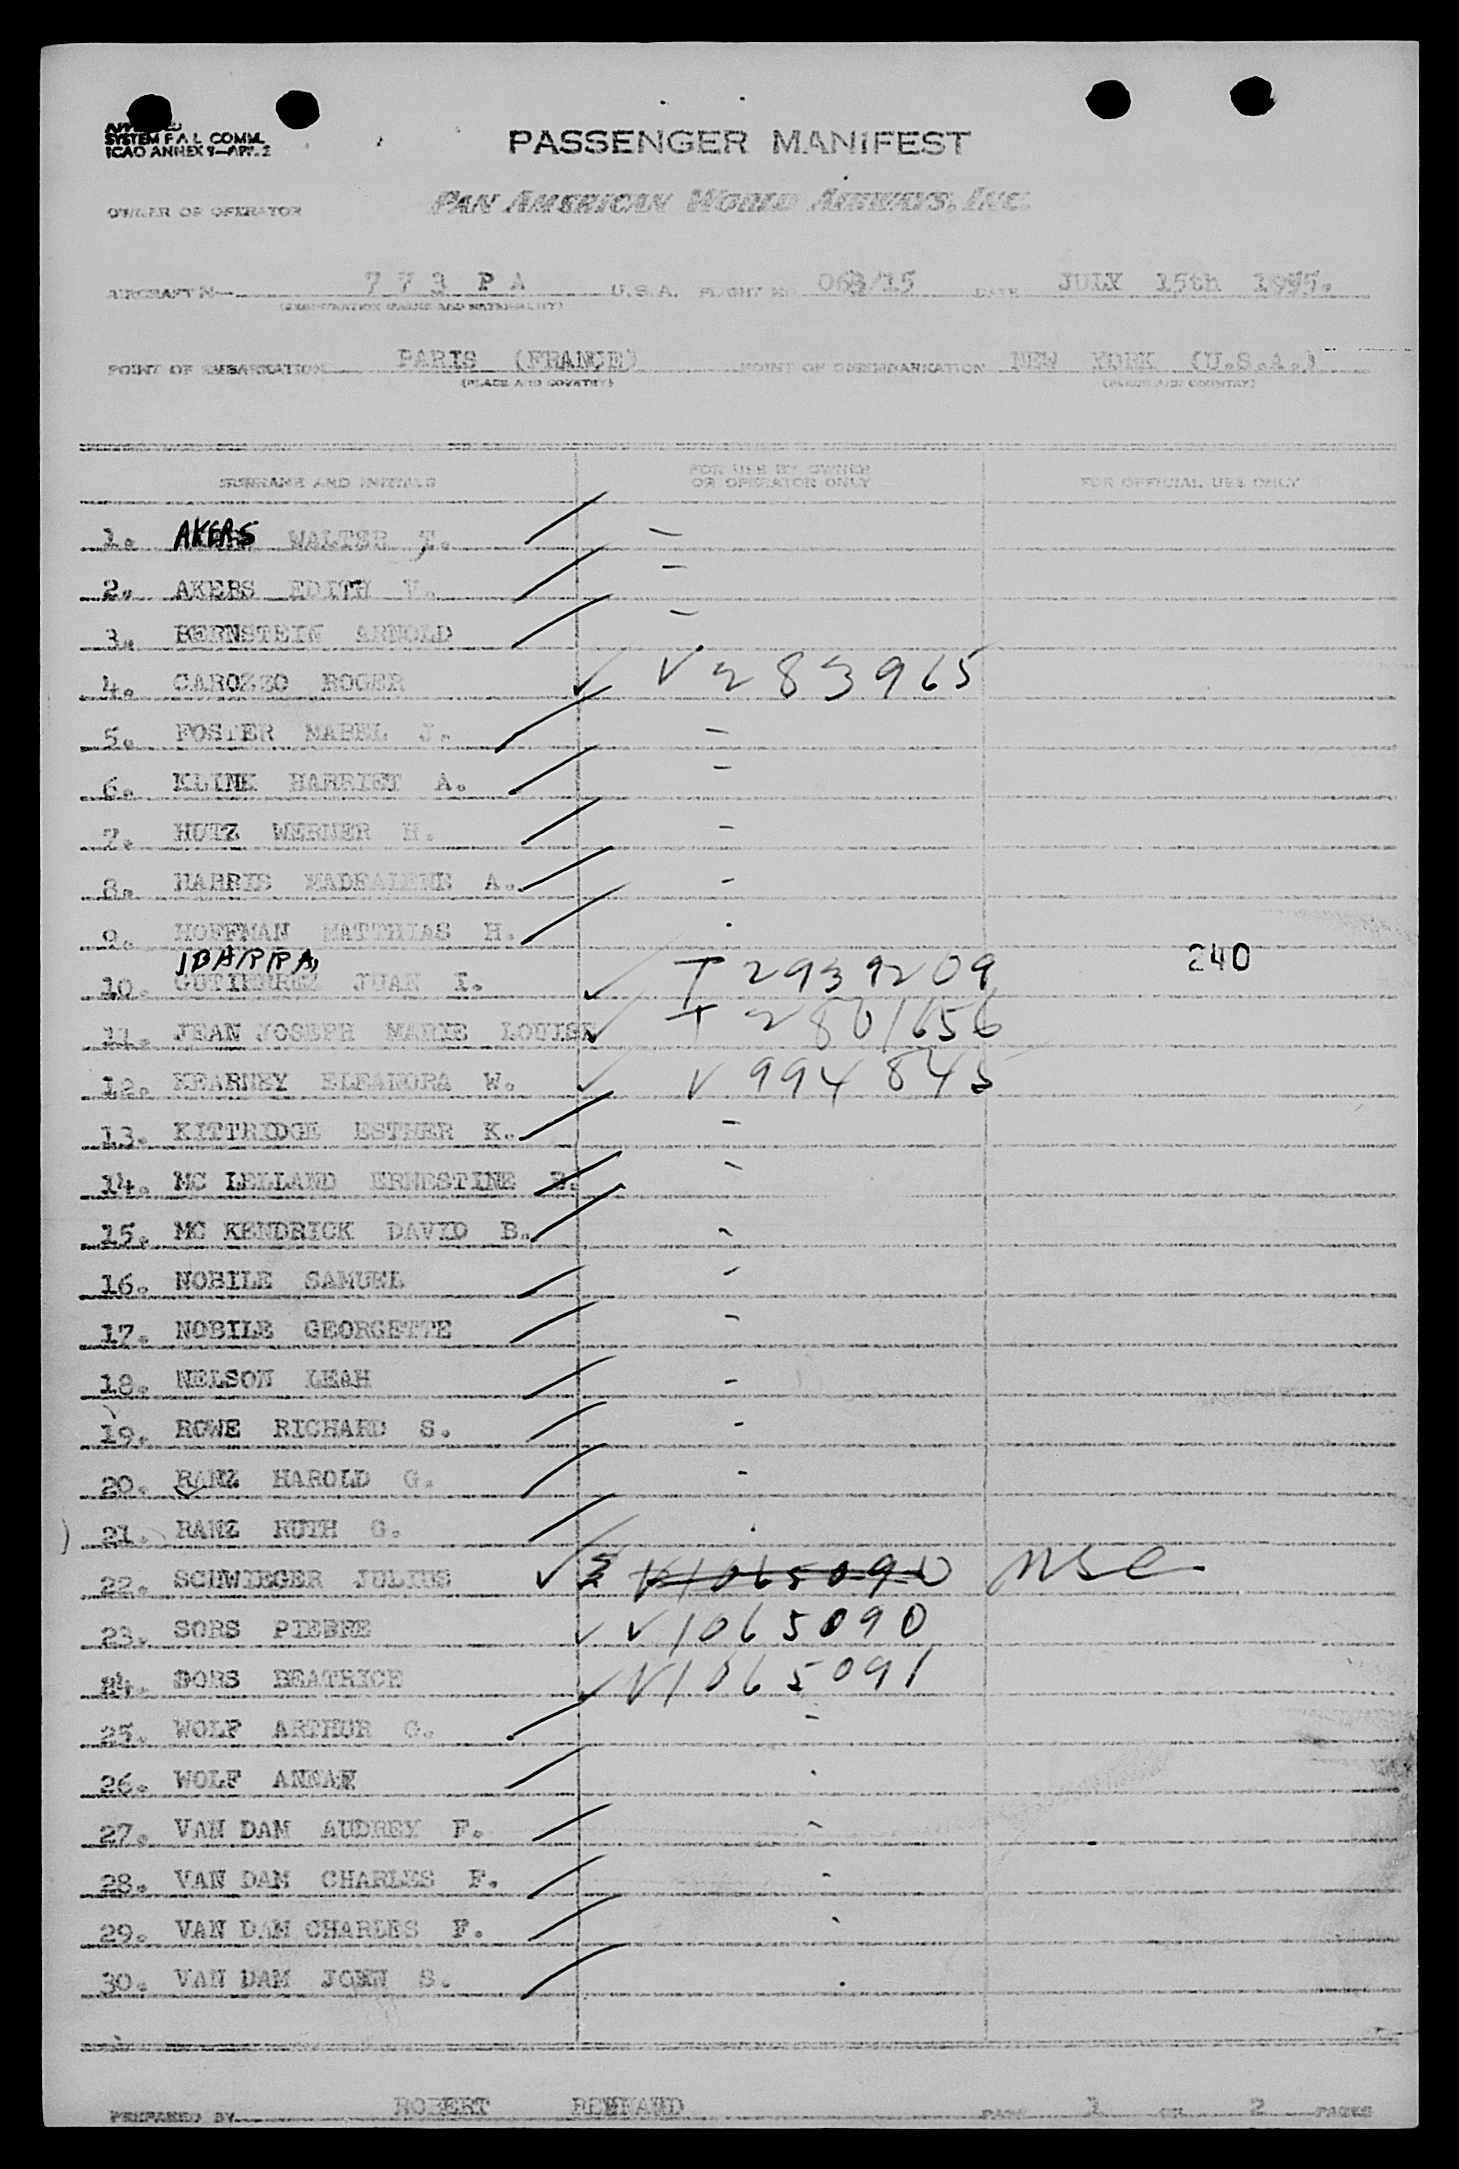 SYSTEM F.A.L. COMM.
ICAO ANNEX 9—APP. 2
PASSENGER MANIFEST
OWNER OR OPERATOR PAN AMERICAN WORLD AIRWAYS, INC.
AIRCRAFT N— 7 7 3 P A U.S.A. FLIGHT No. /15 DATE JULY 15th
(REGISTRATION MARKS AND NATIONALITY)
POINT OF EMBARKATION PARIS (FRANCE) POINT OF DISEMBARKATION NEW YORK (U.S.A.)
(PLACE AND COUNTRY) (PLACE AND COUNTRY)
SURNAME AND INITIALS FOR USE BY OWNER OR OPERATOR ONLY FOR OFFICIAL USE ONLY
1. AKERS WALTER T. –
2. AKERS EDITH V. –
3. BERNSTEIN ARNOLD –
4. CAROZZO ROGER ✓ V 283965
5. FOSTER MABEL J. –
6. KLINK HARRIET A. –
7. HUTZ WERNER H. –
8. HARRIS A. –
9. HOFFMAN MATTHIAS H.
IBARRA,
10. GUTIERREZ JUAN I. ✓ T 2939209 240
11. JEAN JOSEPH MARIE LOUISE ✓ T 2801656
12. KEARNEY ELEANORA W. ✓ V 994845
13. KITTRIDGE ESTHER K. –
14. MC LELLAND ERNESTINE B. –
15. MC KENDRICK DAVID B. –
16. NOBILE SAMUEL –
17. NOBILE GEORGETTE –
18. NELSON LEAH –
19. ROWE RICHARD S. –
20. RANZ HAROLD G. –
21. RANZ RUTH G.
22. SCHWIEGER JULIUS ✓ V1065090
23. SORS PIERRE ✓ V1065090
24. SORS BEATRICE ✓ V1065091
25. WOLF ARTHUR G. –
26. WOLF
27. VAN DAM AUDREY F. –
28. VAN DAM CHARLES F. –
29. VAN DAM CHARLES F.
30. VAN DAM JOHN S.
PREPARED BY ROBERT PAGE 1 OF 2 PAGES